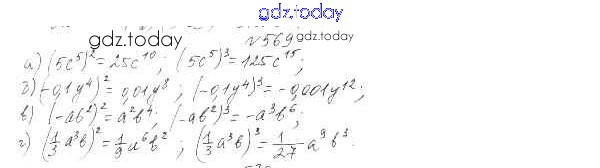 gdz.today
№569
gdz.today gdz.today
а) (5c⁵)² = 25c¹⁰; (5c⁵)³ = 125c¹⁵;
б) (-0,1y⁴)² = 0,01y⁸; (-0,1y⁴)³ = -0,001y¹²;
в) (-ab²)² = a²b⁴; (-ab²)³ = -a³b⁶;
г) (1/3 a³b)² = 1/9 a⁶b²; (1/3 a³b)³ = 1/27 a⁹b³.